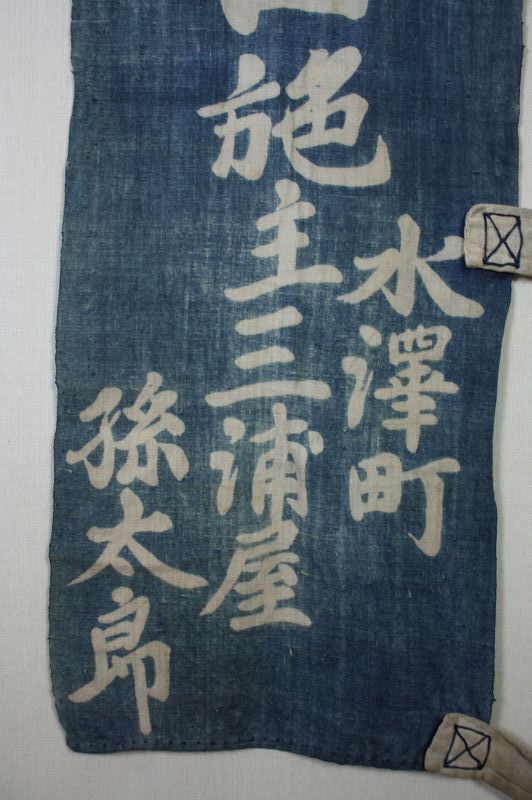 水澤町
施主三浦屋
孫太郎